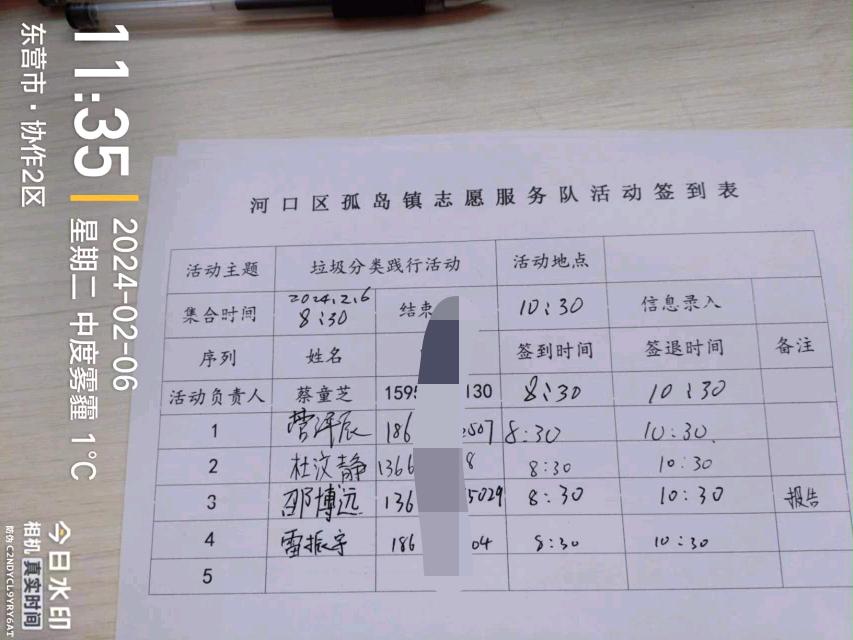 11:35
2024-02-06
星期二 中度雾霾 1℃
东营市·协作2区
今日水印
相机 真实时间
防伪 C2NDYCL9YRY6AT
河口区孤岛镇志愿服务队活动签到表
活动主题 垃圾分类践行活动 活动地点
集合时间 2024.2.6 8:30 结束 10:30 信息录入
序列 姓名 签到时间 签退时间 备注
活动负责人 蔡童芝 159 130 8:30 10:30
1 186 507 8:30 10:30
2 杜汶静 1366 8 8:30 10:30
3 邵博远 136 5029 8:30 10:30 报告
4 雷振宇 186 04 8:30 10:30
5